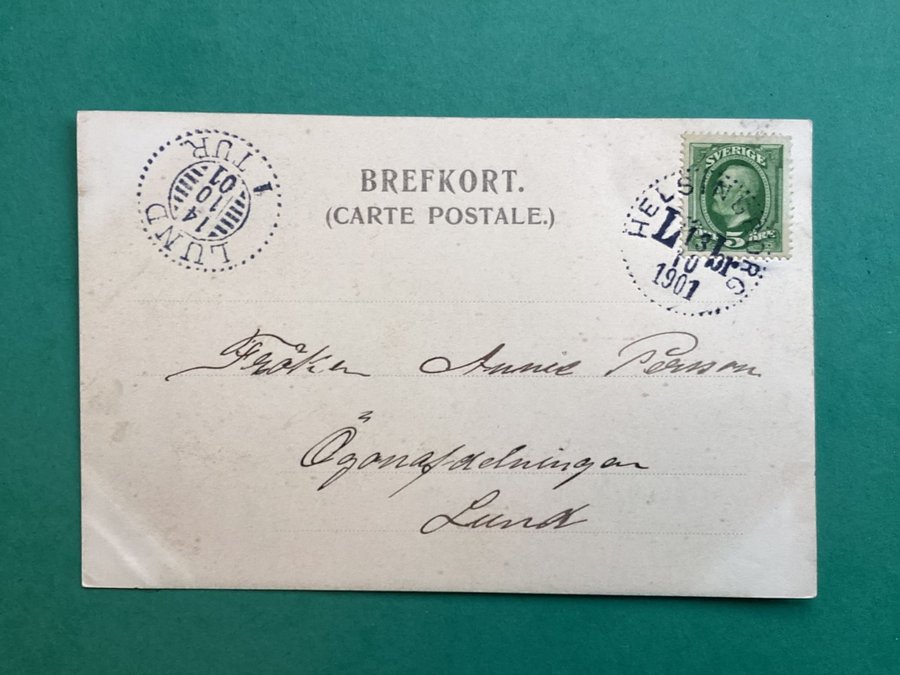 LUND
14
10
01
1 TUR
BREFKORT.
(CARTE POSTALE.)
SVERIGE
5 ÖRE
HELSINGBORG
Lbr
13
10
1901
Fröken Annie Person
Ögonafdelningen
Lund